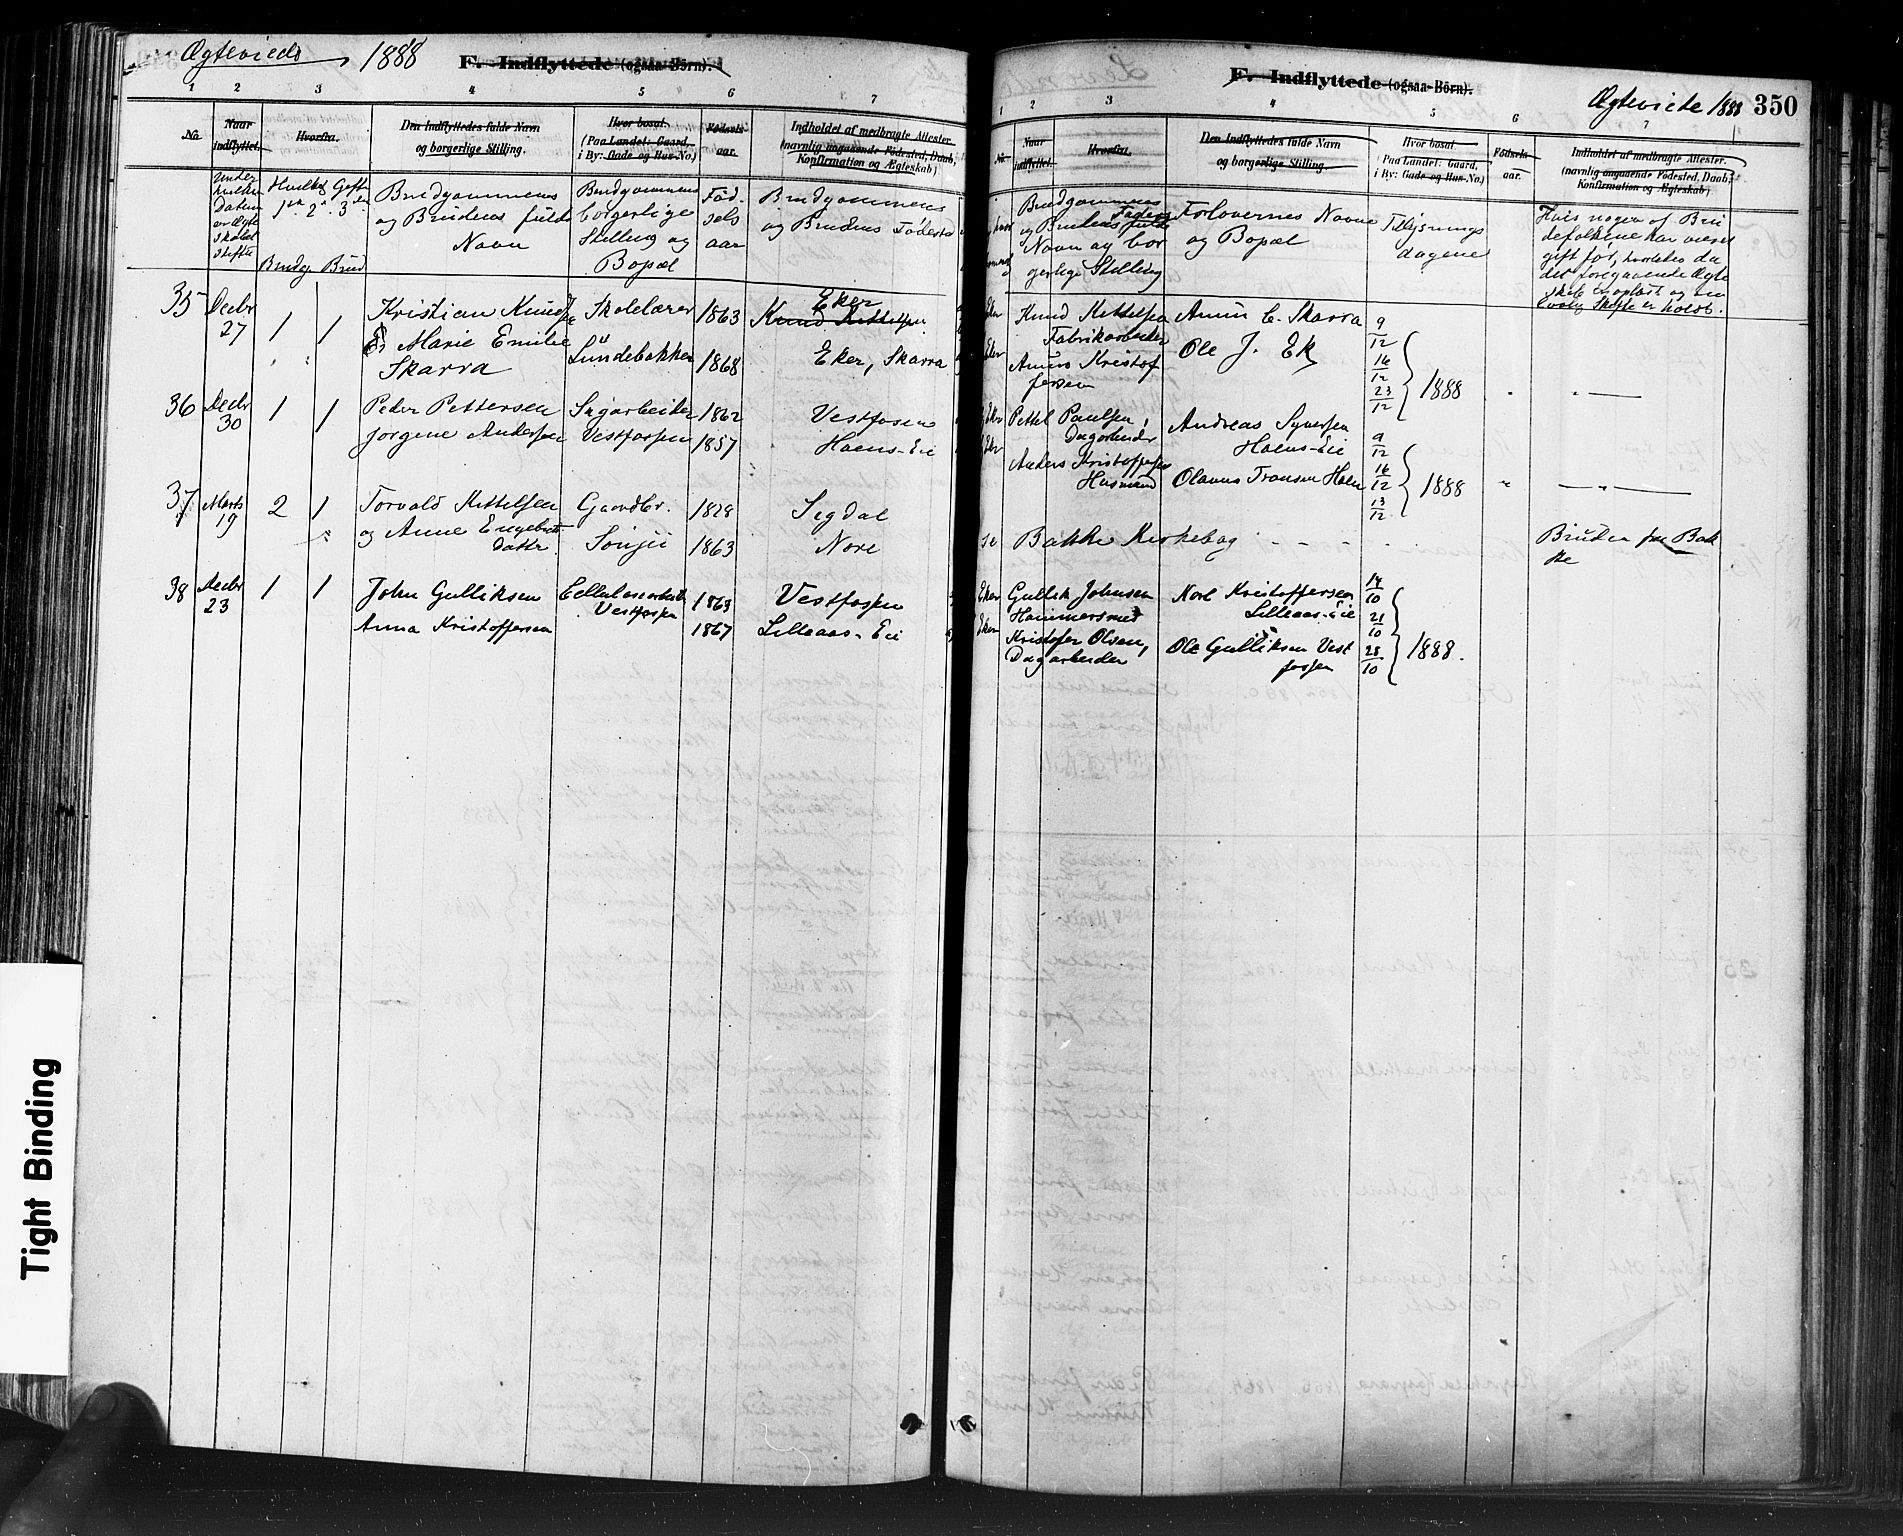 Ægteviede 1888
F. Indflyttede (ogsaa Börn).
1 2 3 4 5 6 7
No.
Naar indflyttet.
Hvorfra.
Den Indflyttedes fulde Navn og borgerlige Stilling.
Hvor bosat (Paa Landet: Gaard, i By: Gade og Hus-No.)
Födsels-aar.
Indholdet af medbragte Attester. (navnlig angaaende Födested, Daab, Konfirmation og Ægteskab)
Under hvilken Datum
Hvilket Gifte 1ste 2. 3die
Brudg. Brud
Brudgommens og Brudens fulde Navn
Brudgommens borgerlige Stilling og Bopæl
Född-sels aar
Brudgommens og Brudens Födested
35 Decbr 27 1 1 Kristian Knudsen Skolelærer 1863 Eker
Knud Kittelsen
Marie Emilie Skarra Lundebakken 1868 Eker, Skarra
36 Decbr 30 1 1 Peder Pettersen Sagarbeider 1862 Vestfossen
Jorgene Andersen Vestfossen 1857 Hoens-Eie
37 Marts 19 2 1 Torvald Kittelsen Gaardbr. 1828 Sigdal
og Anne Engebrets datter 1863 Nore
38 Decbr 23 1 1 John Gulliksen Cellulosearbeider Vestfossen 1863 Vestfossen
Anna Kristoffersen 1867 Lilleaas-Eie
F. Indflyttede (ogsaa Börn).
Ægteviede 1888 350
1 2 3 4 5 6 7
No.
Naar indflyttet.
Hvorfra.
Den Indflyttedes fulde Navn og borgerlige Stilling.
Hvor bosat (Paa Landet: Gaard, i By: Gade og Hus-No.)
Födsels-aar.
Indholdet af medbragte Attester. (navnlig angaaende Födested, Daab, Konfirmation og Ægteskab)
Brudgommens og Brudens Faders fulde Navn og borgerlige Stilling
Forlovernes Navne og Bopæl
Tillysnings dagene
Hvis nogen af Brudefolkene har været gift för, hvorledes da det foregaaende Ægteskab er oplöst og om lovlig Skifte er holdt.
Eker Knud Kittelsen Fabrikarbeider
C. Skarra
9/12
Eker Kristoffersen
Ole J. Ek
16/12
23/12
1888
Eker Pettel Paulsen, Dagarbeider
Andreas Syversen Hoens-Eie
9/12
Eker Anders Kristoffersen Husmand
Olavus Fransen Hoen
16/12
13/12
1888
se Bakke Kirkebog
Bruden fra Bakke
Eker Gullik Johnsen Hammersmed
Karl Kristoffersen Lilleaas-Eie
14/10
21/10
Eker Kristofer Olsen, Dagarbeider
Ole Gulliksen Vestfossen
28/10
1888.
Tight Binding